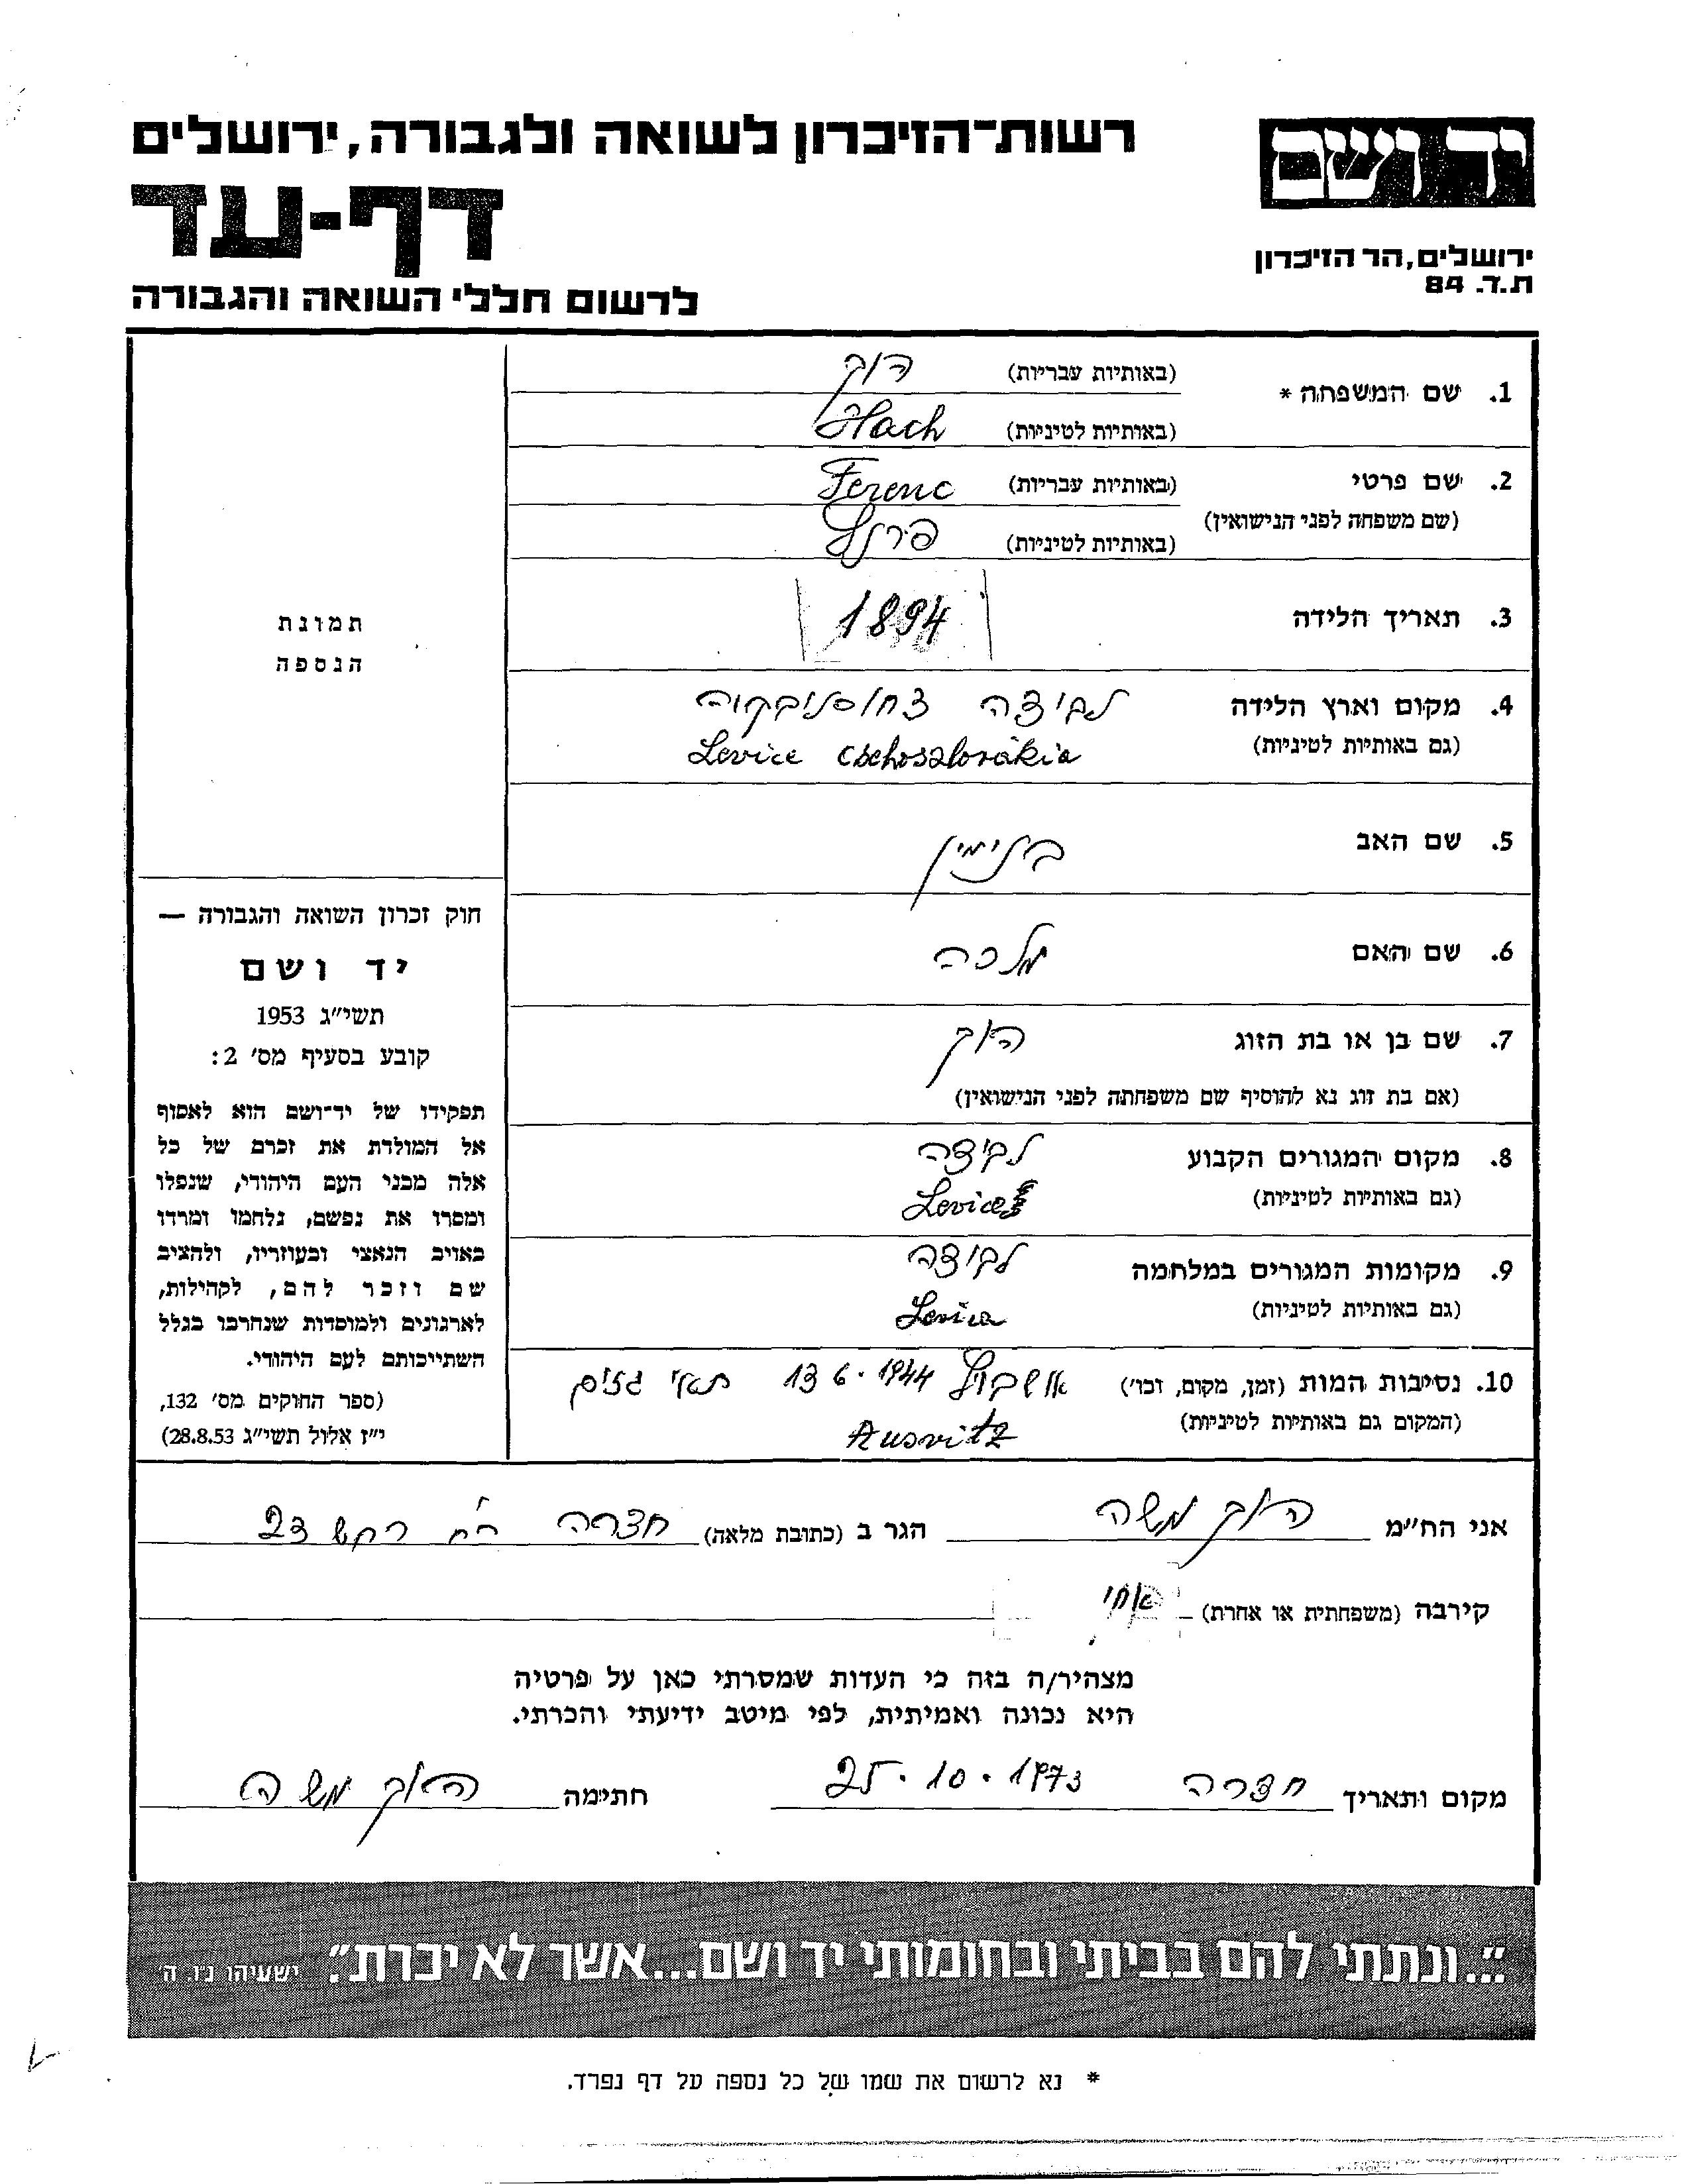 יד ושם
ירושלים, הר הזיכרון
ת.ד. 84
רשות־הזיכרון לשואה ולגבורה, ירושלים
דף-עד
לרשום חללי השואה והגבורה
1. שם המשפחה * (באותיות עבריות) הוך
(באותיות לטיניות) Hach
2. שם פרטי (באותיות עבריות) Ferenc
(שם משפחה לפני הנישואין)
(באותיות לטיניות) פרנץ
3. תאריך הלידה 1894
4. מקום וארץ הלידה לביצה צחוסלובקיה
(גם באותיות לטיניות) Levice Csehoszlovákia
5. שם האב בינימין
6. שם האם מלכה
7. שם בן או בת הזוג האך
(אם בת זוג נא להוסיף שם משפחתה לפני הנישואין)
8. מקום המגורים הקבוע לביצה
(גם באותיות לטיניות) Levice
9. מקומות המגורים במלחמה לביצה
(גם באותיות לטיניות) Levica
10. נסיבות המות (זמן, מקום, וכו') אושביץ 13 6. 1944 תאי גזים
(המקום גם באותיות לטיניות) Ausvitz
תמונת
הנספה
חוק זכרון השואה והגבורה —
יד ושם
תשי״ג 1953
קובע בסעיף מס׳ 2:
תפקידו של יד־ושם הוא לאסוף
אל המולדת את זכרם של כל
אלה מבני העם היהודי, שנפלו
ומסרו את נפשם, נלחמו ומרדו
באויב הנאצי ובעוזריו, ולהציב
שם וזכר להם, לקהילות,
לארגונים ולמוסדות שנחרבו בגלל
השתייכותם לעם היהודי.
(ספר החוקים מס׳ 132,
י״ז אלול תשי״ג 28.8.53)
אני הח״מ האך משה הגר ב (כתובת מלאה) חדרה רח׳ 23
קירבה (משפחתית או אחרת) אחי
מצהיר/ה בזה כי העדות שמסרתי כאן על פרטיה
היא נכונה ואמיתית, לפי מיטב ידיעתי והכרתי.
מקום ותאריך חדרה 25.10.1973 חתימה האך משה
״...ונתתי להם בביתי ובחומותי יד ושם...אשר לא יכרת״. ישעיהו נ״ו. ה׳
* נא לרשום את שמו של כל נספה על דף נפרד.